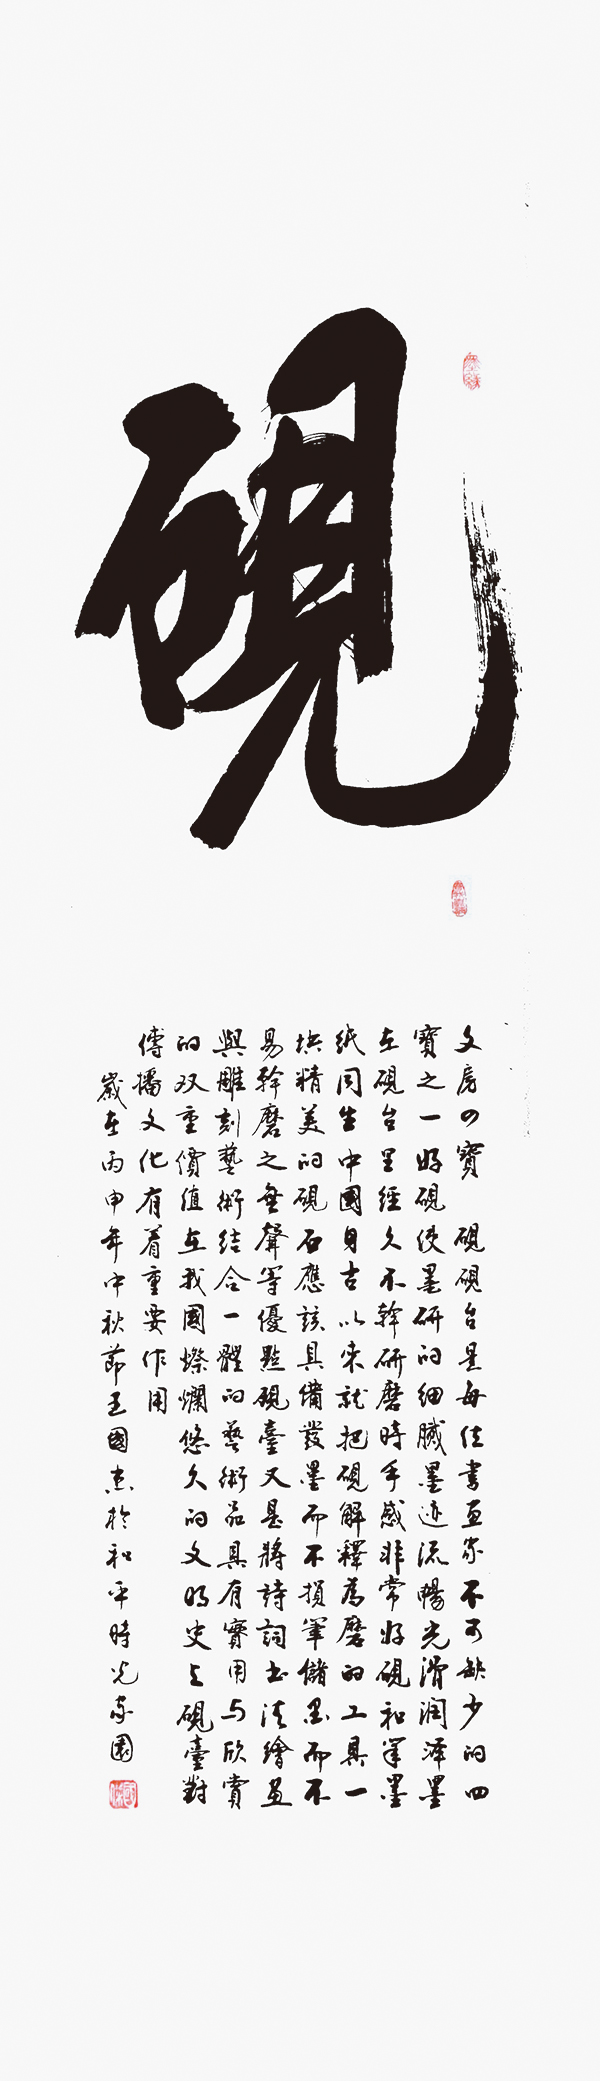 硯
文房四寶 硯硯台是每位書畫家不可缺少的四
寶之一好硯使墨研的細膩墨迹流暢光滑潤澤墨
在硯台里經久不幹研磨時手感非常好硯和筆墨
紙同生中國自古以來就把硯解釋為磨的工具一
塊精美的硯石應該具備發墨而不損筆儲墨而不
易幹磨之無聲等優點硯臺又是將詩詞書法繪畫
與雕刻藝術結合一體的藝術品具有實用与欣賞
的双重價值在我國燦爛悠久的文明史上硯臺對
傳播文化有着重要作用
歲在丙申年中秋節王國杰於和平時光家園